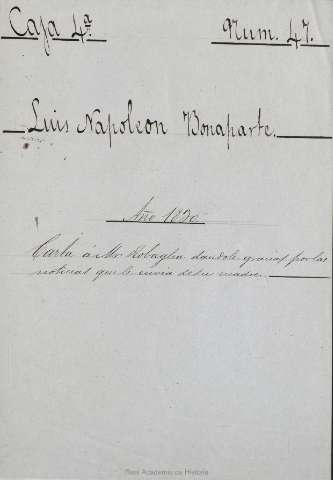 Caja 4ª Num. 47.
Luis Napoleon Bonaparte.
Año 1830
Carta á Mr. dandole gracias por las
noticias que le envia de su madre.
Real Academia de la Historia